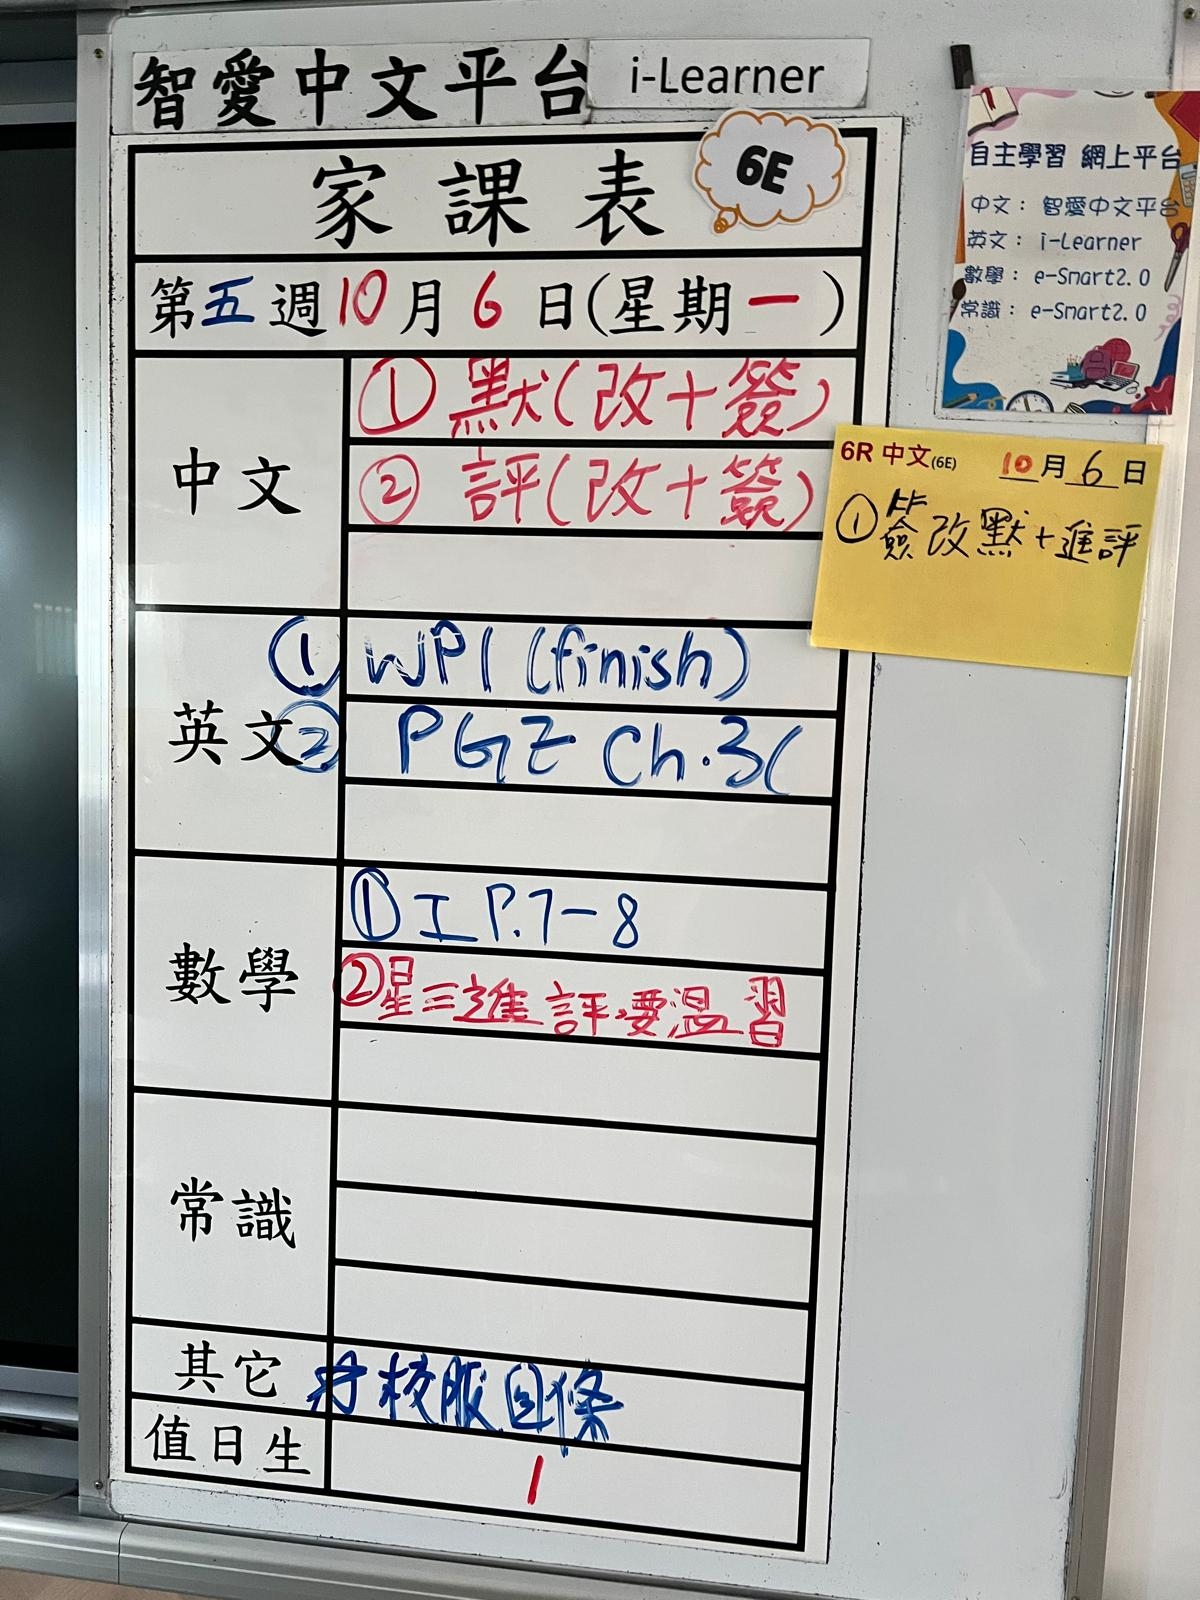 智愛中文平台 i-Learner
家課表 6E
第五週10月6日(星期一)
中文
① 默(改+簽)
② 評(改+簽)
英文
① WP1 (finish)
② PGZ Ch.3(
數學
① 工 P.7-8
② 星三進評要溫習
常識
其它
校服回條
值日生
1
自主學習 網上平台
中文： 智愛中文平台
英文： i-Learner
數學： e-Smart2.0
常識： e-Smart2.0
6R 中文(6E) 10月6日
① 簽改默+進評